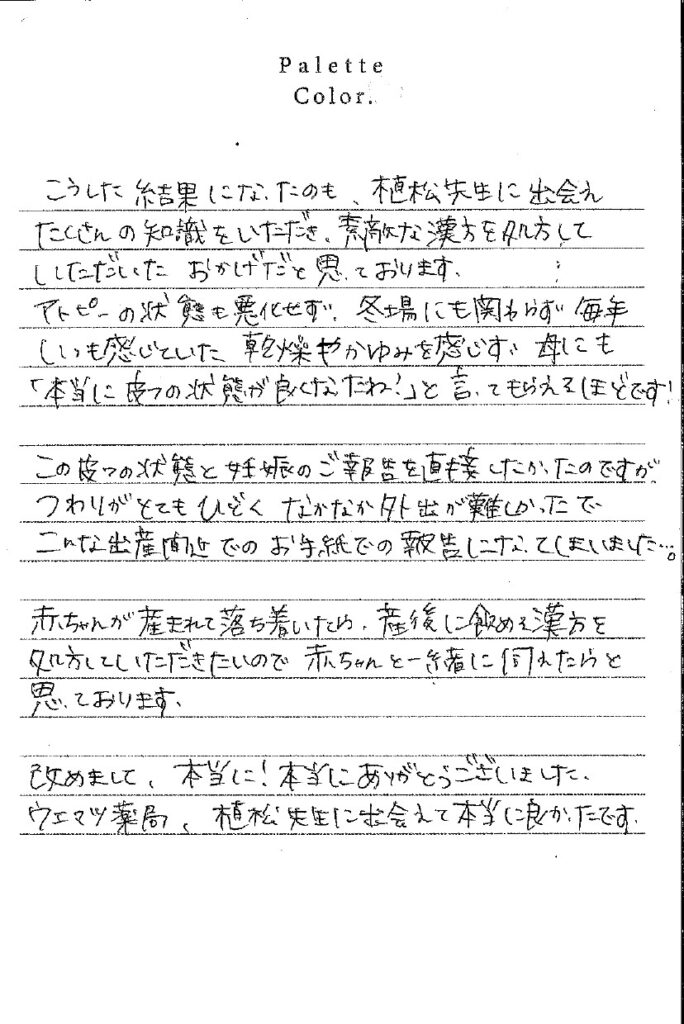 Palette
Color.
こうした結果になったのも、植松先生に出会え
たくさんの知識をいただき、素敵な漢方を処方して
いただいた おかげだと思っております。
アトピーの状態も悪化せず、冬場にも関わらず毎年
いつも感じていた 乾燥やかゆみを感じず 母にも
「本当に皮フの状態が良くなったね!」と言ってもらえるほどです!
この皮フの状態と妊娠のご報告を直接したかったのですが、
つわりがとてもひどく なかなか外出が難しかったで
こんな出産直近でのお手紙での報告になってしまいました…。
赤ちゃんが産まれて落ち着いたら、産後に飲める漢方を
処方していただきたいので 赤ちゃんと一緒に伺えたらと
思っております。
改めまして、本当に!本当にありがとうございました。
ウエマツ薬局、植松先生に出会えて本当に良かったです。